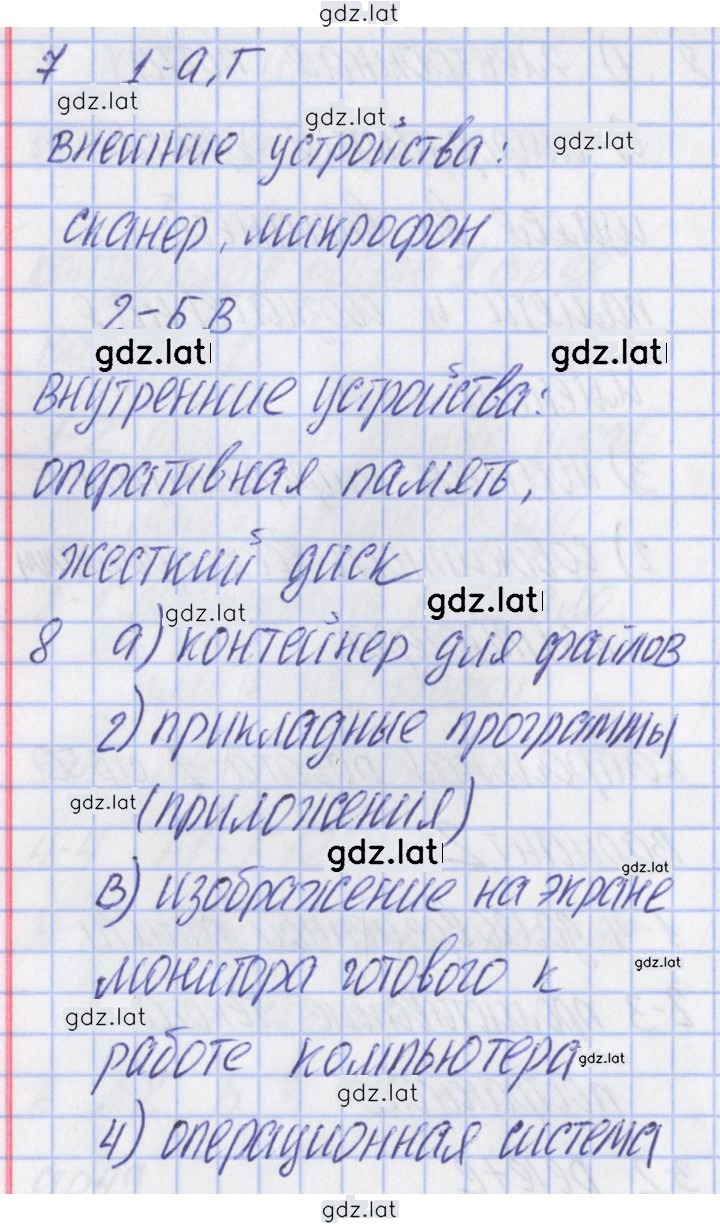 gdz.lat
7 1-а,г
gdz.lat
gdz.lat
внешние устройства:
gdz.lat
сканер, микрофон
2-б,в
gdz.lat
gdz.lat
внутренние устройства:
оперативная память,
жесткий диск
gdz.lat
gdz.lat
8 а) контейнер для файлов
г) прикладные программы
gdz.lat
(приложения)
gdz.lat
gdz.lat
в) изображение на экране
монитора готового к
gdz.lat
gdz.lat
работе компьютера
gdz.lat
gdz.lat
4) операционная система
gdz.lat